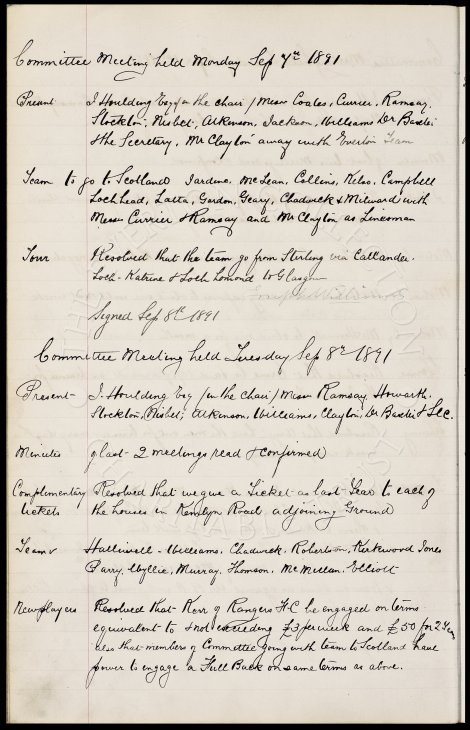 Committee Meeting held Monday Sep 7th 1891
Present J Houlding Esq (in the chair) Messrs Coates, Currier, Ramsay,
Stockton, Nisbet, Atkinson, Jackson, Williams Dr Baxter
& the Secretary, Mr Clayton away with Everton Team
Team to go to Scotland Jardine, McLean, Collins, Kelso, Campbell
Lochhead, Latta, Gordon, Geary, Chadwick & Milward with
Messrs Currier & Ramsay and Mr Clayton as Linesman
Tour Resolved that the team go from Stirling via Callander,
Loch-Katrine & Loch Lomond to Glasgow
Signed Sep 8th 1891
Committee Meeting held Tuesday Sep 8th 1891
Present - J. Houlding Esq (in the chair) Messrs Ramsay, Howarth,
Stockton, Nisbet, Atkinson, Williams, Clayton, Dr Baxter & Sec.
Minutes of last 2 meetings read & confirmed
Complimentary Resolved that we give a Ticket as last Year to each of
tickets the houses in Kemlyn Road adjoining Ground
Team v Halliwell - Williams, Chadwick, Robertson, Kirkwood Jones
Parry, Wyllie, Murray, Thomson, McMillan, Elliott
New players Resolved that Kerr of Rangers F.C be engaged on terms
equivalent to & not exceeding £3 per week and £50 for 2 Years
also that members of Committee going with team to Scotland have
power to engage a Full Back on same terms as above.